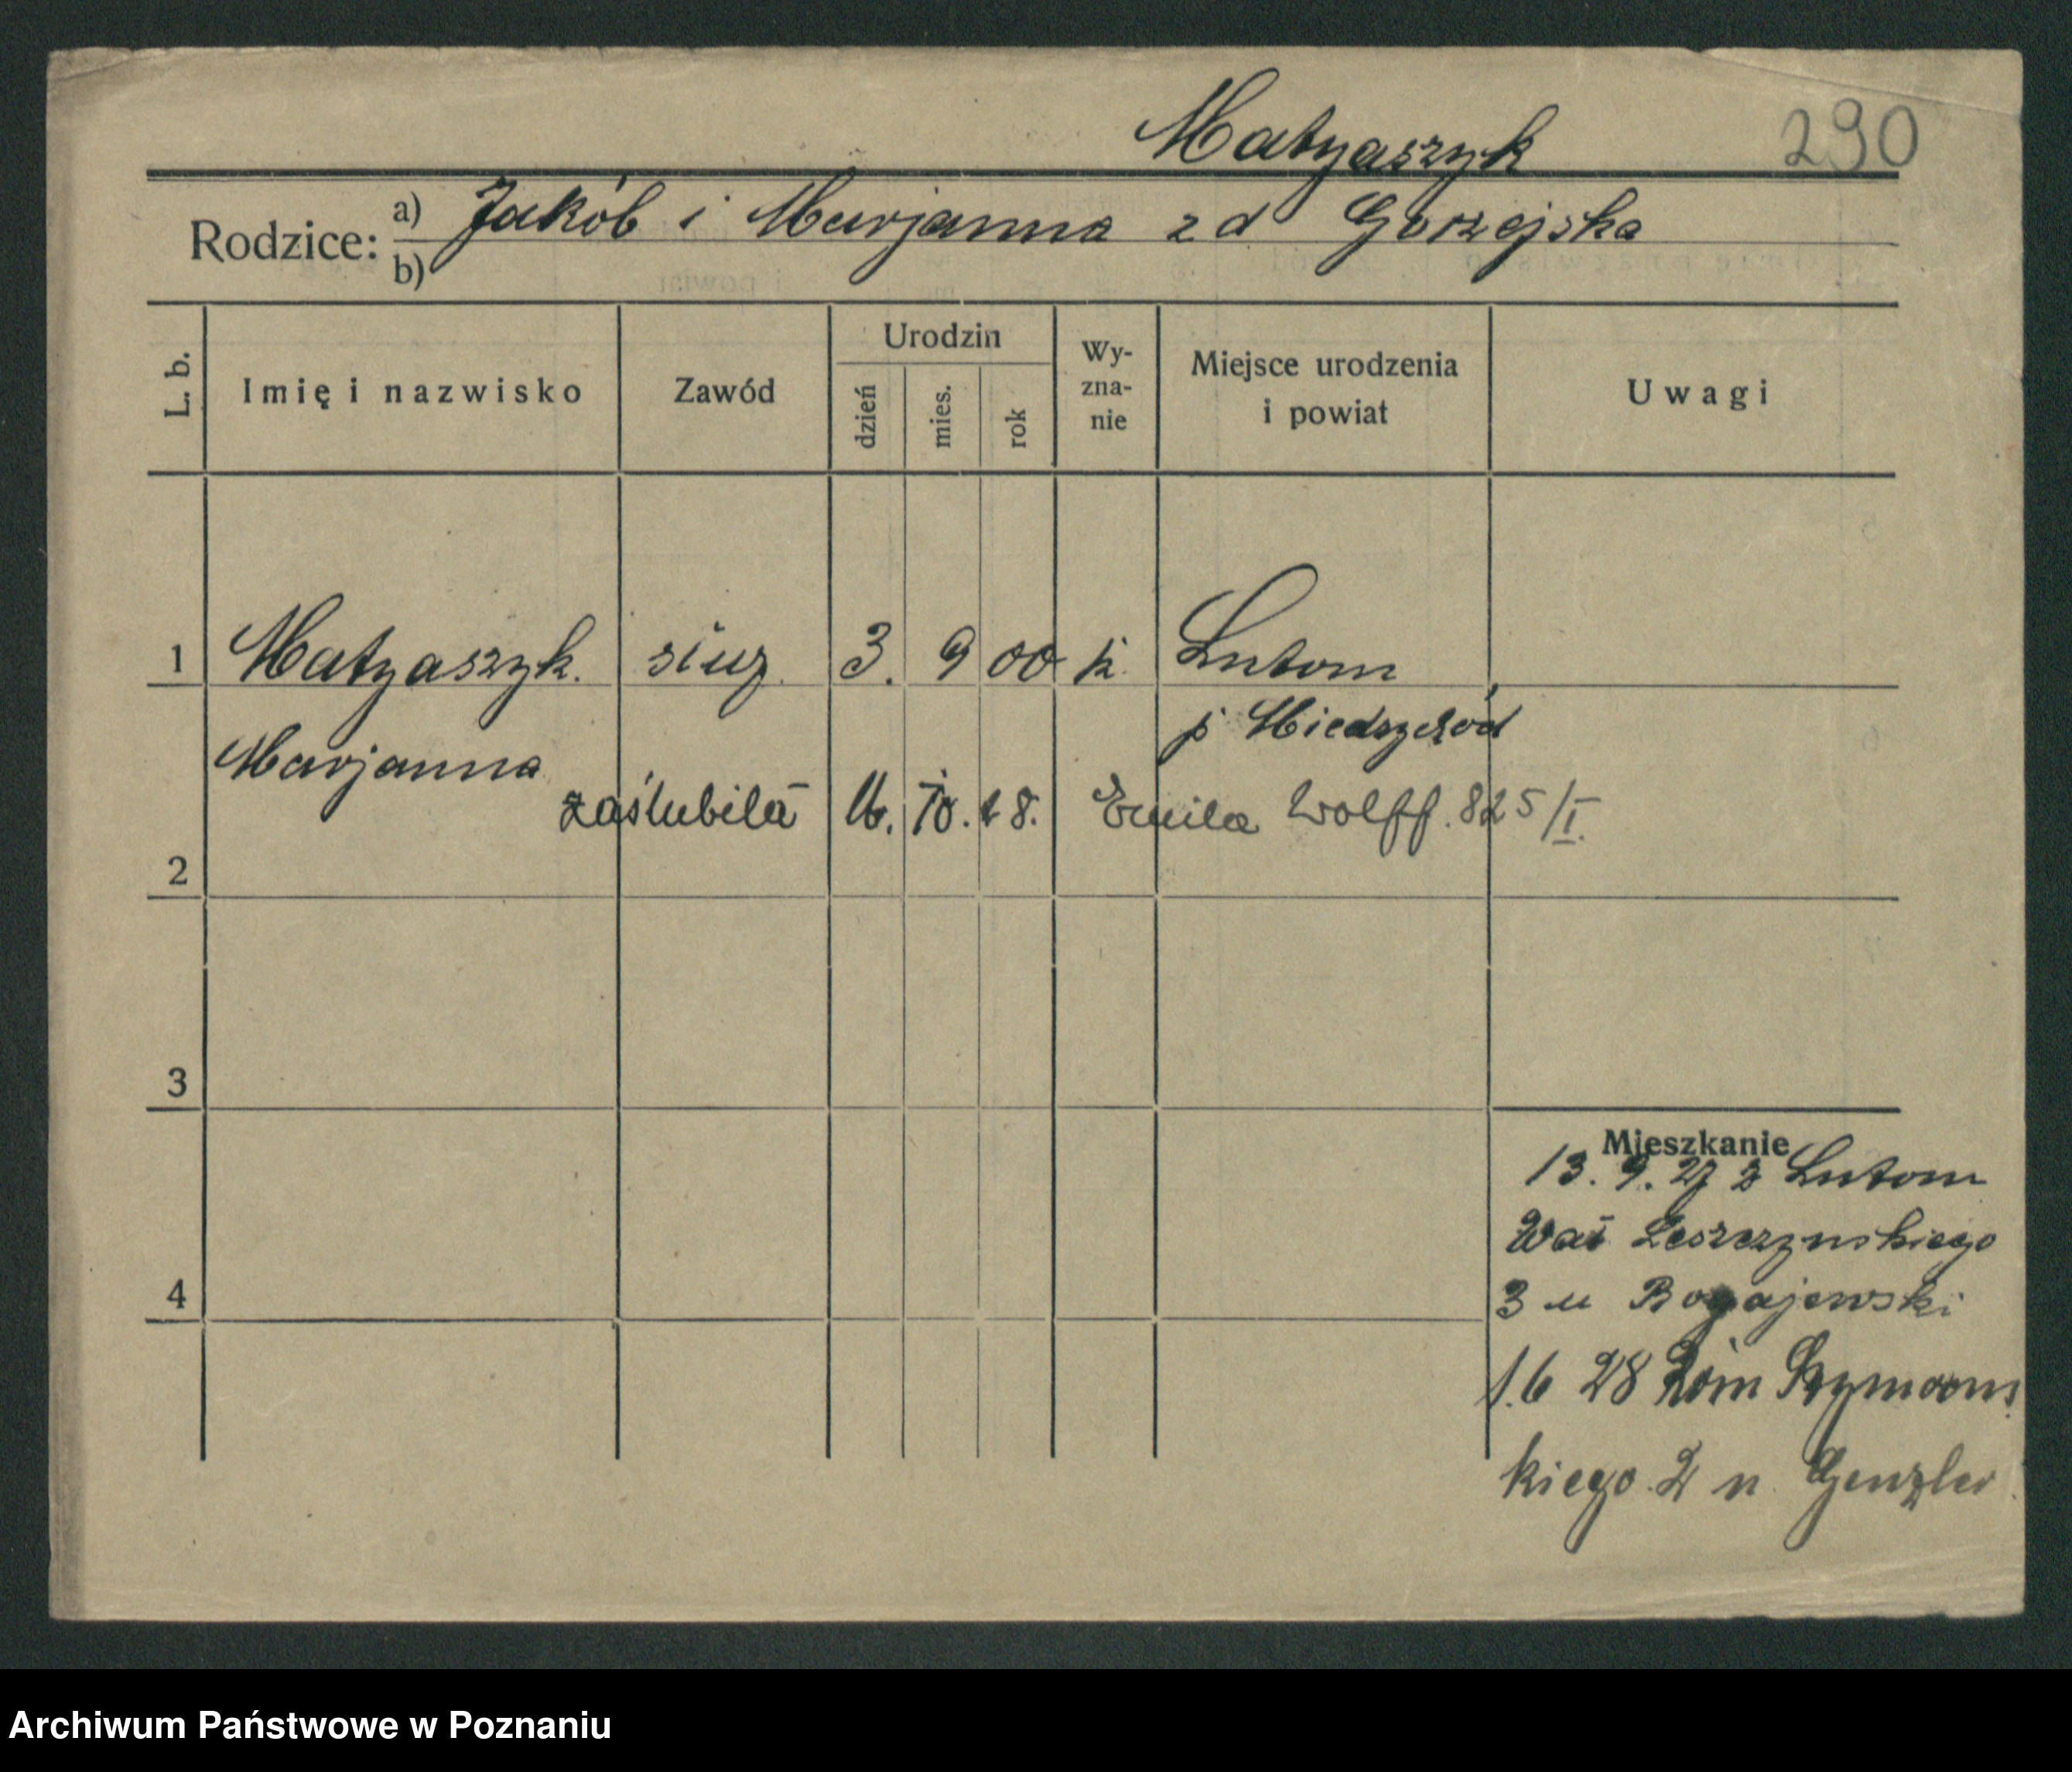 Matyaszyk 290
Rodzice: a) Jakób i Marjanna z d Gorzejska
b)
L. b. Imię i nazwisko Zawód Urodzin dzień mies. rok Wy-zna-nie Miejsce urodzenia i powiat Uwagi
1 Matyaszyk. służ. 3. 9 00 k. Lutom
p Miedzychód
Marjanna
zaślubiła 16. 10. 28. Emila Wolff. 825/I.
2
3
Mieszkanie
13. 9. 27 z Lutom
Wał Leszczynskiego
4
3 u Bogajewski
1.6 28 Szymans
kiego 2 u. Genzler
Archiwum Państwowe w Poznaniu